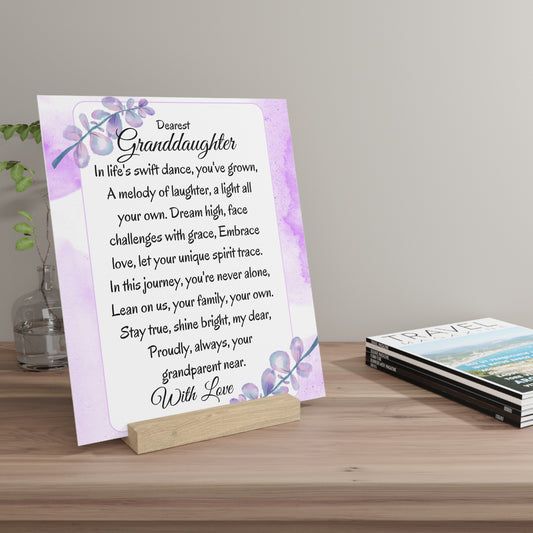 Dearest
Granddaughter
In life's swift dance, you've grown,
A melody of laughter, a light all
your own. Dream high, face
challenges with grace, Embrace
love, let your unique spirit trace.
In this journey, you're never alone,
Lean on us, your family, your own.
Stay true, shine bright, my dear,
Proudly, always, your
grandparent near.
With Love
TRAVEL